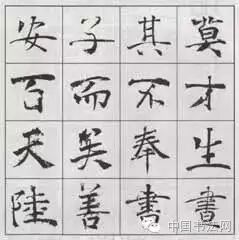 安子其莫
百而不才
天美奉生
陸善書書
中国书法网